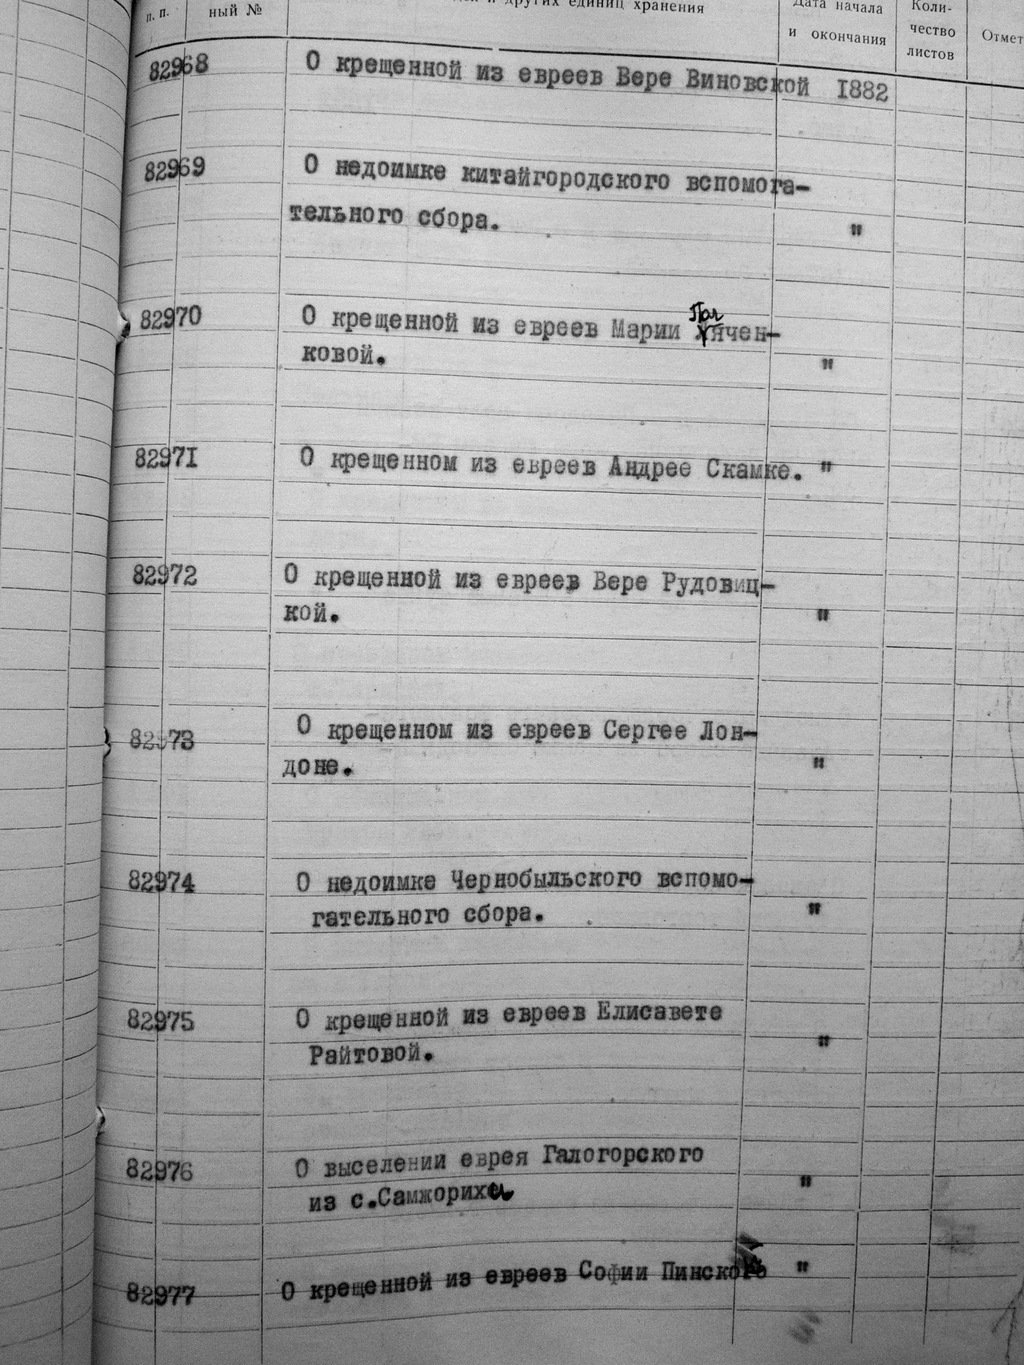 п. п.
ный №
и других единиц хранения
Дата начала
и окончания
Коли-
чество
листов
Отмет
82968 О крещенной из евреев Вере Виновской 1882
82969 О недоимке китайгородского вспомога-
тельного сбора. "
82970 О крещенной из евреев Марии Полячен-
ковой. "
82971 О крещенном из евреев Андрее Скамке. "
82972 О крещенной из евреев Вере Рудовиц-
кой. "
82973 О крещенном из евреев Сергее Лон-
доне. "
82974 О недоимке Чернобыльского вспомо-
гательного сбора. "
82975 О крещенной из евреев Елисавете
Райтовой. "
82976 О выселении еврея Галогорского
из с.Самжорихи "
82977 О крещенной из евреев Софии "